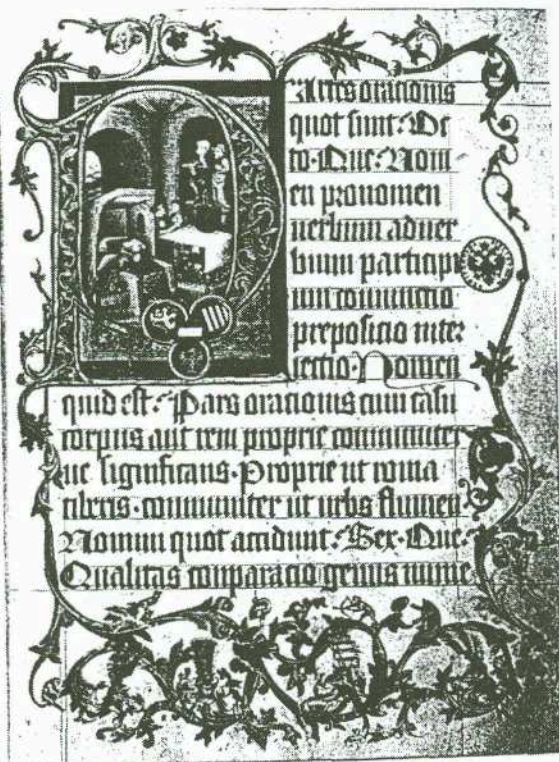 Artes oracionis
quot sunt: Oc
to. Que: Nom
en pronomen
uerbum aduer
bium particip
ium coniunctio
preposicio inter
iectio. Nomen
quid est: Pars oracionis cum casu
corpus aut rem proprie communiter
ue significans. Proprie ut roma
tiberis. communiter ut urbs flumen.
Nomini quot accidunt: Sex. Que:
Qualitas comparacio genus nume